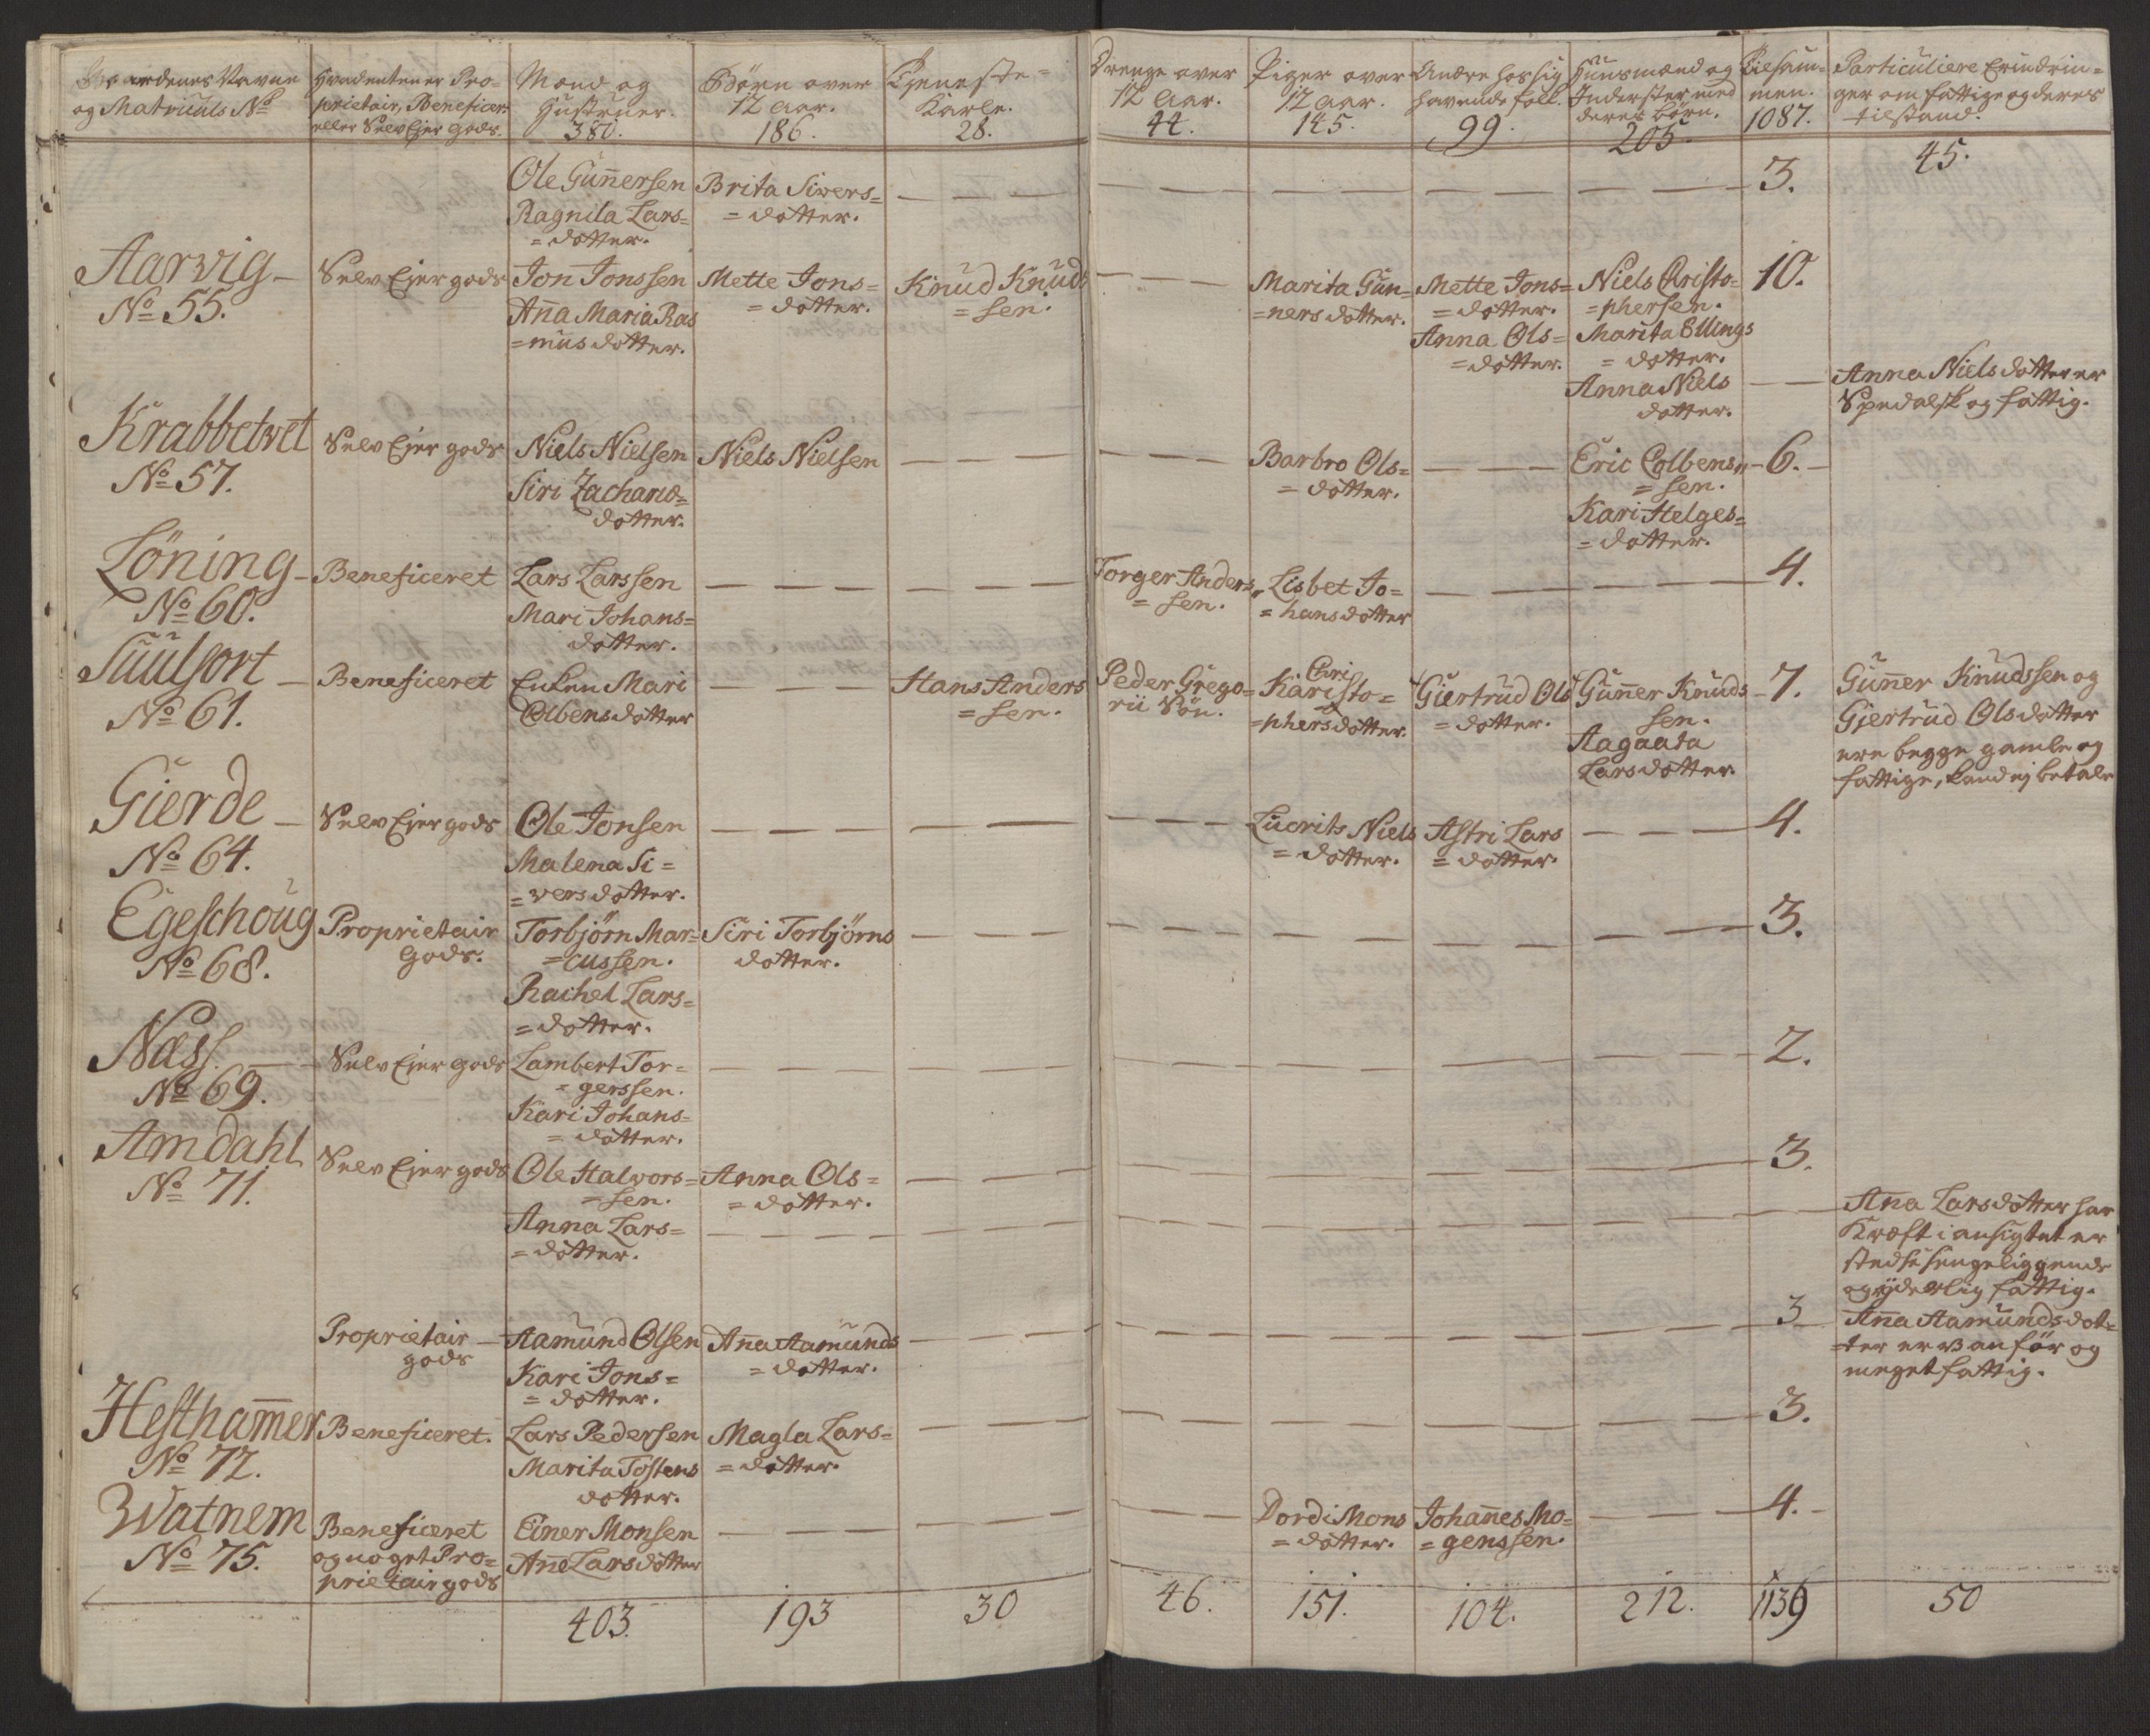 Gaardenes Navne
og Matriculs No
Hvadenten er Pro-
prietair, Beneficer:
eller Selv Ejer gods.
Mænd og
Hustruer.
380.
Børn over
12 Aar.
186.
Tjeneste-
Karle.
28.
Drenge over
12 Aar.
44.
Piger over
12 aar.
145.
Andre hos sig
havende folk.
99.
Huusmænd og
Inderster med
deres börn.
205.
Tilsam-
men.
1087.
Particuliere Erindrin=
ger om fattige og deres
tilstand.
45.
Ole Guñersen
Ragnila Lars=
=dotter.
Brita Sivers=
=dotter.
3.
Aarvig
No 55.
Selv Ejer gods
Jon Jonssen
Aña Maria Ras
=mus dotter.
Mette Jons=
=dotter.
Knud Knud
=sen.
Marita Gun=
=ners dotter.
Mette Jons=
=dotter.
Anna Ols=
=dotter.
Niels Christo=
=phersen.
Marita Ellings
=dotter.
Anna Niels
dotter.
10.
Anna Niels dotter er
Spedalsk og fattig.
Krabbetvet
No 57.
Selv Ejer gods
Niels Nielsen
Siri Zacharie=
dotter.
Niels Nielsen
Barbro Ols=
=dotter.
Eric Colbensn
=sen.
Kari Helges=
=dotter.
6.
Löning
No 60.
Beneficeret
Lars Larssen
Mari Johans=
dotter.
Torger Anders
=sen.
Lisbet Jo=
=hansdotter
4.
Suulfort
No 61.
Beneficeret
Enken Mari
Colbensdotter
Hans Anders
=sen.
Peder Grego=
rii Sön.
Chri
Kari sto=
=phersdotter.
Giertrud Ols
=dotter.
Guñer Knuds
sen.
Aagaata
Larsdotter.
7.
Guñer Knudssen og
Gjertrud Olsdotter
ere begge gamle og
fattige, kand ej betale
Gierde
No 64.
Selv Ejer gods
Ole Jonsen
Malena Si=
=versdotter.
Lucrits Niels
=dotter.
Astri Lars
=dotter.
4.
Egeschoug
No 68.
Proprietair
Gods.
Torbjörn Mar=
=cussen.
Rachel Lars=
=dotter.
Siri Torbjörns
dotter.
3.
Næss.
No 69.
Selv Ejer gods
Lambert Tor=
=gerssen.
Kari Johans=
=dotter.
2.
Amdahl
No 71.
Selv Ejer gods
Ole Halvors=
=sen.
Anna Lars=
=dotter.
Anna Ols=
=dotter.
3.
Aña Larsdotter har
Kræft i ansigtet er
stedse sengeliggende
og yderlig fattig.
Proprietair
gods
Aamund Olsen
Kari Jons=
=dotter.
Aña Aamunds
=dotter.
3
Aña Aamundsdot=
=ter er vanför og
meget fattig.
Hesthamer
No 72.
Beneficeret.
Lars Pedersen
Marita Tostens
dotter.
Magla Lars=
=dotter.
3.
Watnem
No 75.
Beneficeret
og noget Pro=
prietairgods
Einer Monsen
Añe Larsdotter
Dordi Mons
=dotter.
Johañes Mo=
=genssen.
4.
403.
193
30
46.
151.
104.
212.
1139
50